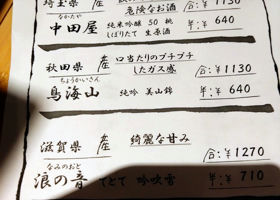 埼玉県 産 危険なお酒 合:¥1130
なかたや
中田屋 純米吟醸 50 桃 半:¥640
しぼりたて 生原酒
秋田県 産 口当たりのプチプチ
したガス感 合:¥1130
ちょうかいさん
鳥海山 純吟 美山錦 半:¥640
滋賀県 産 綺麗な甘み 合:¥1270
なみのおと
浪の音 てとて 吟吹雪 半:¥710